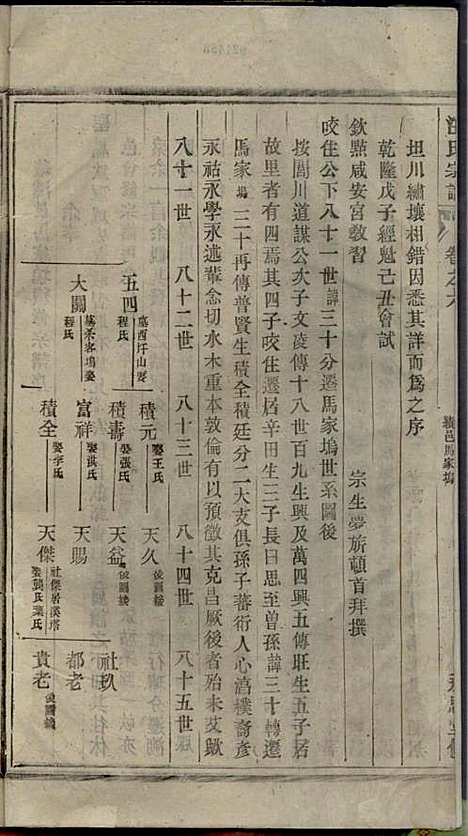 汪氏宗譜
卷之六
績邑馬家塢
坦川繡壤相錯因悉其詳而為之序
乾隆戊子經魁己丑會試
欽點咸安宮教習
宗生夢旂頓首拜撰
咬住公下八十一世諱三十分遷馬家塢世系圖後
按閭川道謀公次子文陵傳十八世百九生興及萬四興五傳旺生五子居
故里者有四焉其四子咬住遷居辛田生三子長日思至曾孫諱三十轉遷
馬家塢三十再傳普賢生積全積廷分二大支俱孫子蕃衍人心湻樸裔彥
永祜永學永述輩念切水木重本敦倫有以預徵其克昌厥後者殆未艾歟
八十一世
八十二世
八十三世
八十四世
八十五世
五四
程氏
積元
娶王氏
天久
後圖接
積壽
娶張氏
天益
後圖接
社玖
大關
程氏
富祥
娶洪氏
天賜
都老
積全
娶字氏
天傑
社傑居溪塔
娶張氏葉氏
貴老
後圖接